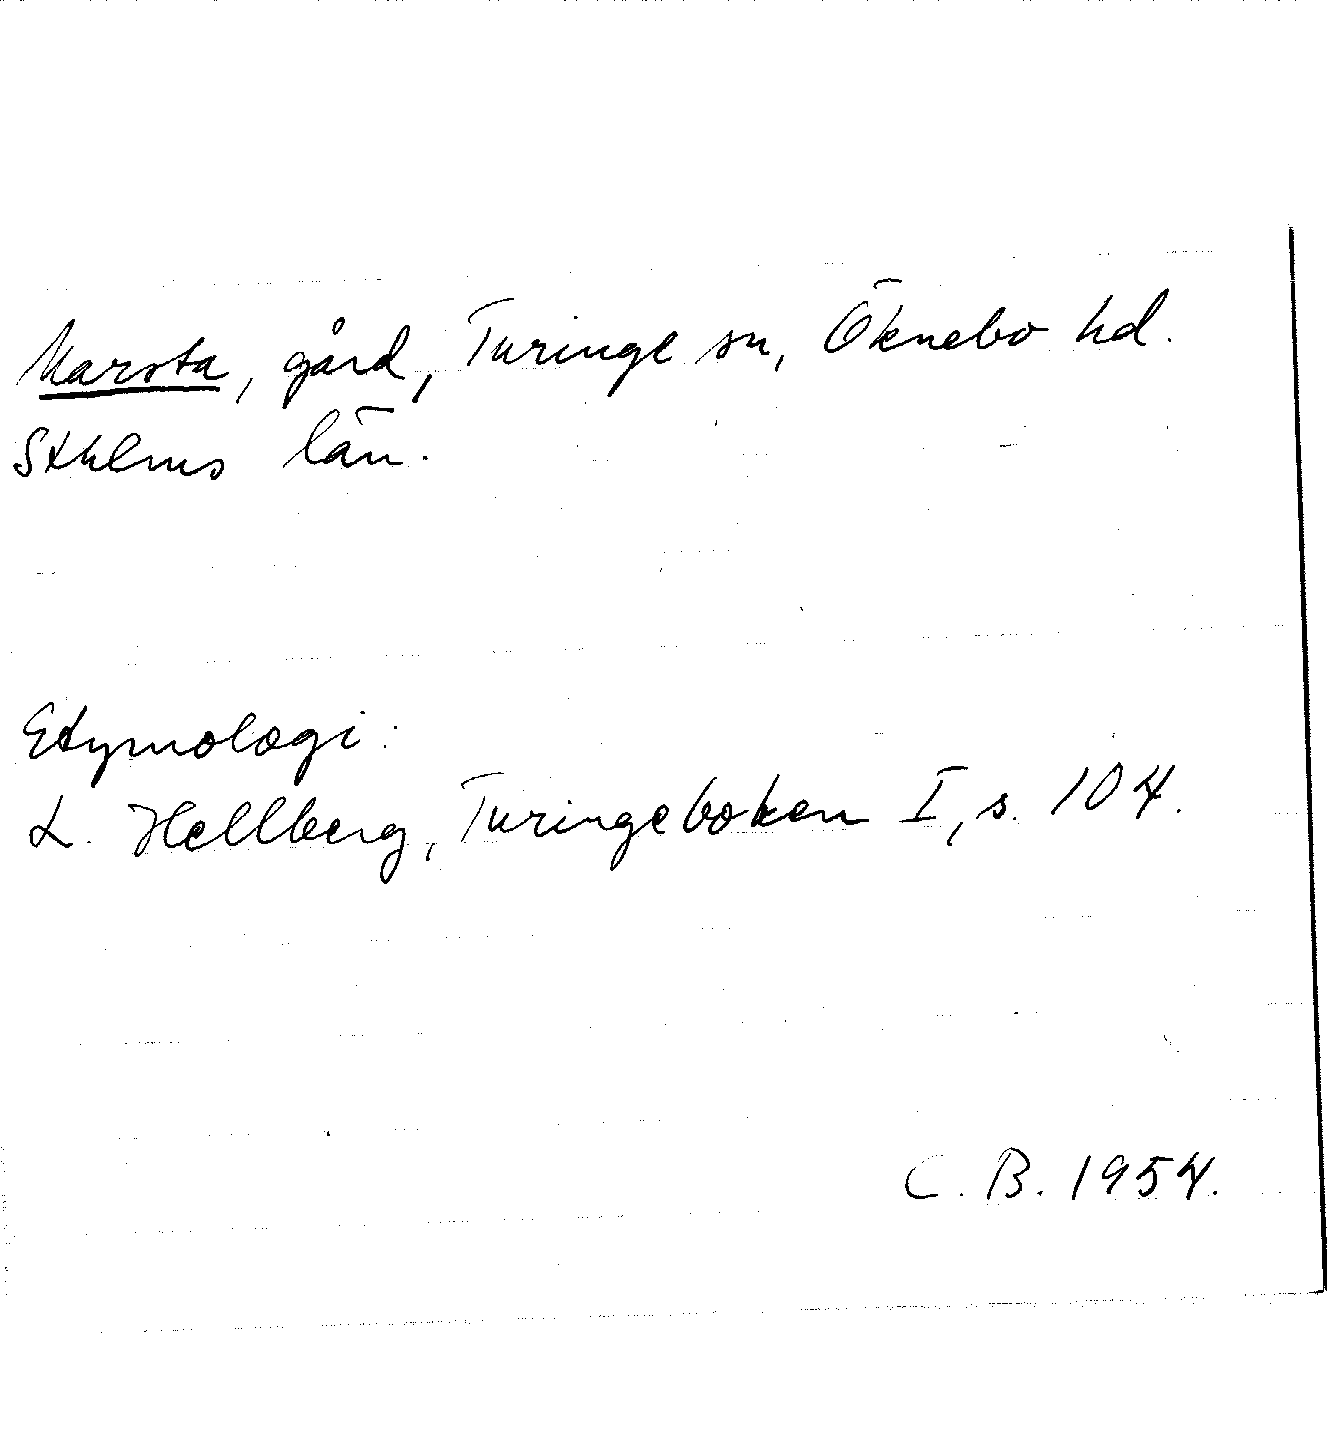 Marsta, gård, Turinge sn, Öknebo hd.
Sthlms län.
Etymologi:
L. Hellberg, Turingeboken I, s. 104.
C. B. 1954.